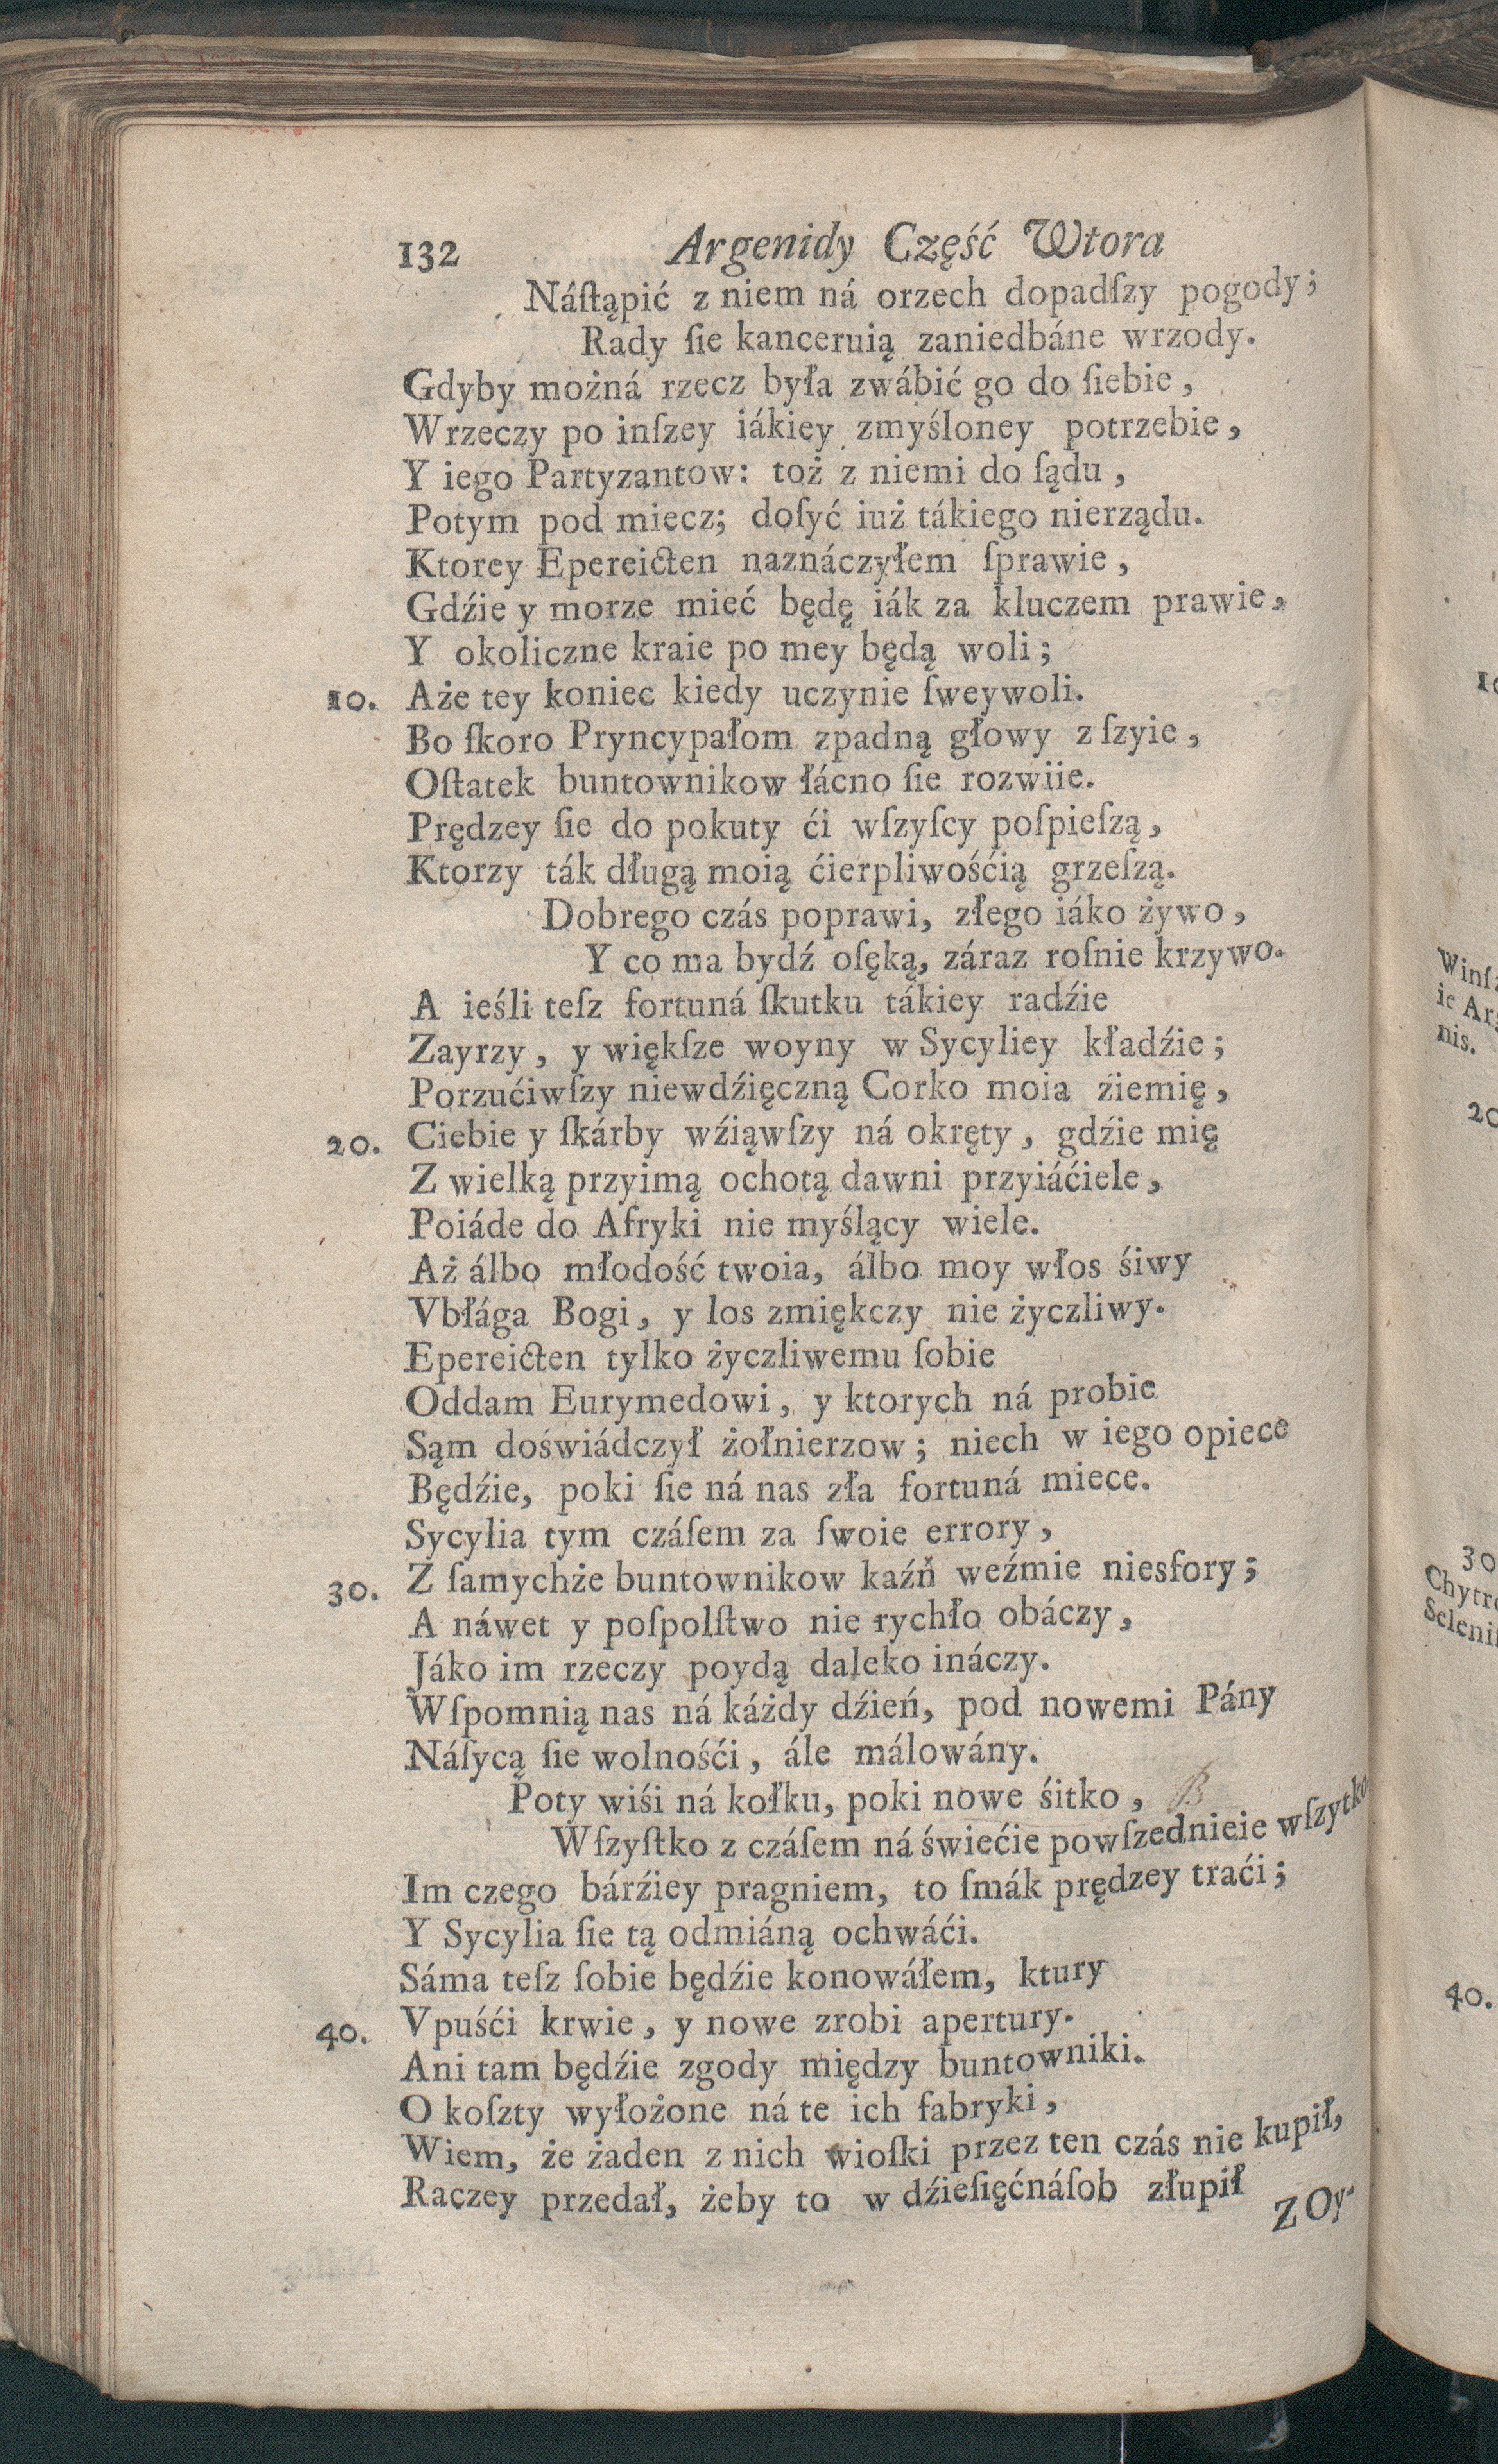 132 Argenidy Część Wtora
Náſtąpić z niem ná orzech dopadſzy pogody;
Rady ſie kanceruią zaniedbáne wrzody.
Gdyby możná rzecz była zwábić go do ſiebie,
Wrzeczy po inſzey iákiey zmyśloney potrzebie,
Y iego Partyzantow: toż z niemi do ſądu,
Potym pod miecz; doſyć iuż tákiego nierządu.
Ktorey Epereicten naznáczyłem ſprawie,
Gdźie y morze mieć będę iák za kluczem prawie,
Y okoliczne kraie po mey będą woli;
10. Aże tey koniec kiedy uczynie ſweywoli.
Bo ſkoro Pryncypałom zpadną głowy z ſzyie,
Oſtatek buntownikow łácno ſie rozwiie.
Prędzey ſie do pokuty ći wſzyſcy poſpieſzą,
Ktorzy ták długą moią ćierpliwośćią grzeſzą.
Dobrego czás poprawi, złego iáko żywo,
Y co ma bydź oſęką, záraz roſnie krzywo.
A ieśli teſz fortuná ſkutku tákiey radźie
Zayrzy, y więkſze woyny w Sycyliey kładźie;
Porzućiwſzy niewdźięczną Corko moia źiemię,
20. Ciebie y ſkárby wźiąwſzy ná okręty, gdźie mię
Z wielką przyimą ochotą dawni przyiáćiele,
Poiáde do Afryki nie myślący wiele.
Aż álbo młodość twoia, álbo moy włos śiwy
Vbłága Bogi, y los zmiękczy nie życzliwy.
Epereicten tylko życzliwemu ſobie
Oddam Eurymedowi, y ktorych ná probie
Sąm doświádczył żołnierzow; niech w iego opiece
Będźie, poki ſie ná nas zła fortuná miece.
Sycylia tym czáſem za ſwoie errory,
30. Z ſamychże buntownikow kaźń weźmie niesfory;
A náwet y poſpolſtwo nie rychło obáczy,
Jáko im rzeczy poydą daleko ináczy.
Wſpomnią nas ná káżdy dźień, pod nowemi Pány
Náſycą ſie wolnośći, ále málowány.
Poty wiśi ná kołku, poki nowe śitko,
Wſzyſtko z czáſem ná świećie powſzednieie wſzytko
Im czego bárźiey pragniem, to ſmák prędzey traći;
Y Sycylia ſie tą odmiáną ochwáći.
Sáma teſz ſobie będźie konowáłem, ktury
40. Vpuśći krwie, y nowe zrobi apertury.
Ani tam będźie zgody między buntowniki.
O koſzty wyłożone ná te ich fabryki,
Wiem, że żaden z nich wioſki przez ten czás nie kupił,
Raczey przedał, żeby to w dźieſięćnáſob złupił
Z Oy-
10
Winſz
ie Arg
nis.
20
30
Chytro
Seleniſ
40.